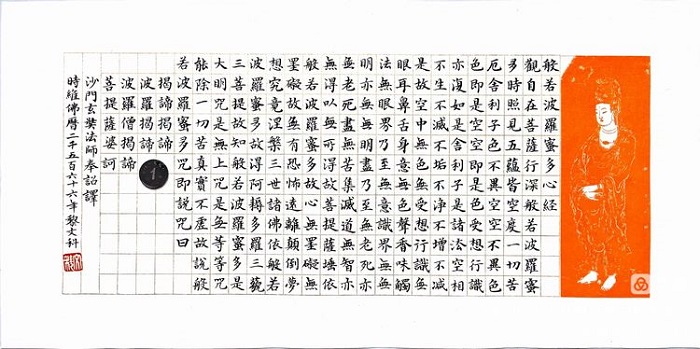 般若波羅蜜多心経
觀自在菩薩行深般若波羅蜜
多時照見五蘊皆空度一切苦
厄舍利子色不異空空不異色
色即是空空即是色受想行識
亦復如是舍利子是諸法空相
不生不滅不垢不淨不增不減
是故空中無色無受想行識無
眼耳鼻舌身意無色聲香味觸
法無眼界乃至無意識界無無
明亦無無明盡乃至無老死亦
無老死盡無苦集滅道無智亦
無得以無所得故菩提薩埵依
般若波羅蜜多故心無罣礙無
罣礙故無有恐怖遠離顛倒夢
想究竟涅槃三世諸佛依般若
波羅蜜多故得阿耨多羅三藐
三菩提故知般若波羅蜜多是
大明咒是無上咒是無等等咒
能除一切苦真實不虛故說般
若波羅蜜多咒即說咒曰
揭諦揭諦
波羅揭諦
波羅僧揭諦
菩提薩婆訶
沙門玄奘法師奉詔譯
時維佛曆二千五百六十六年黎文科